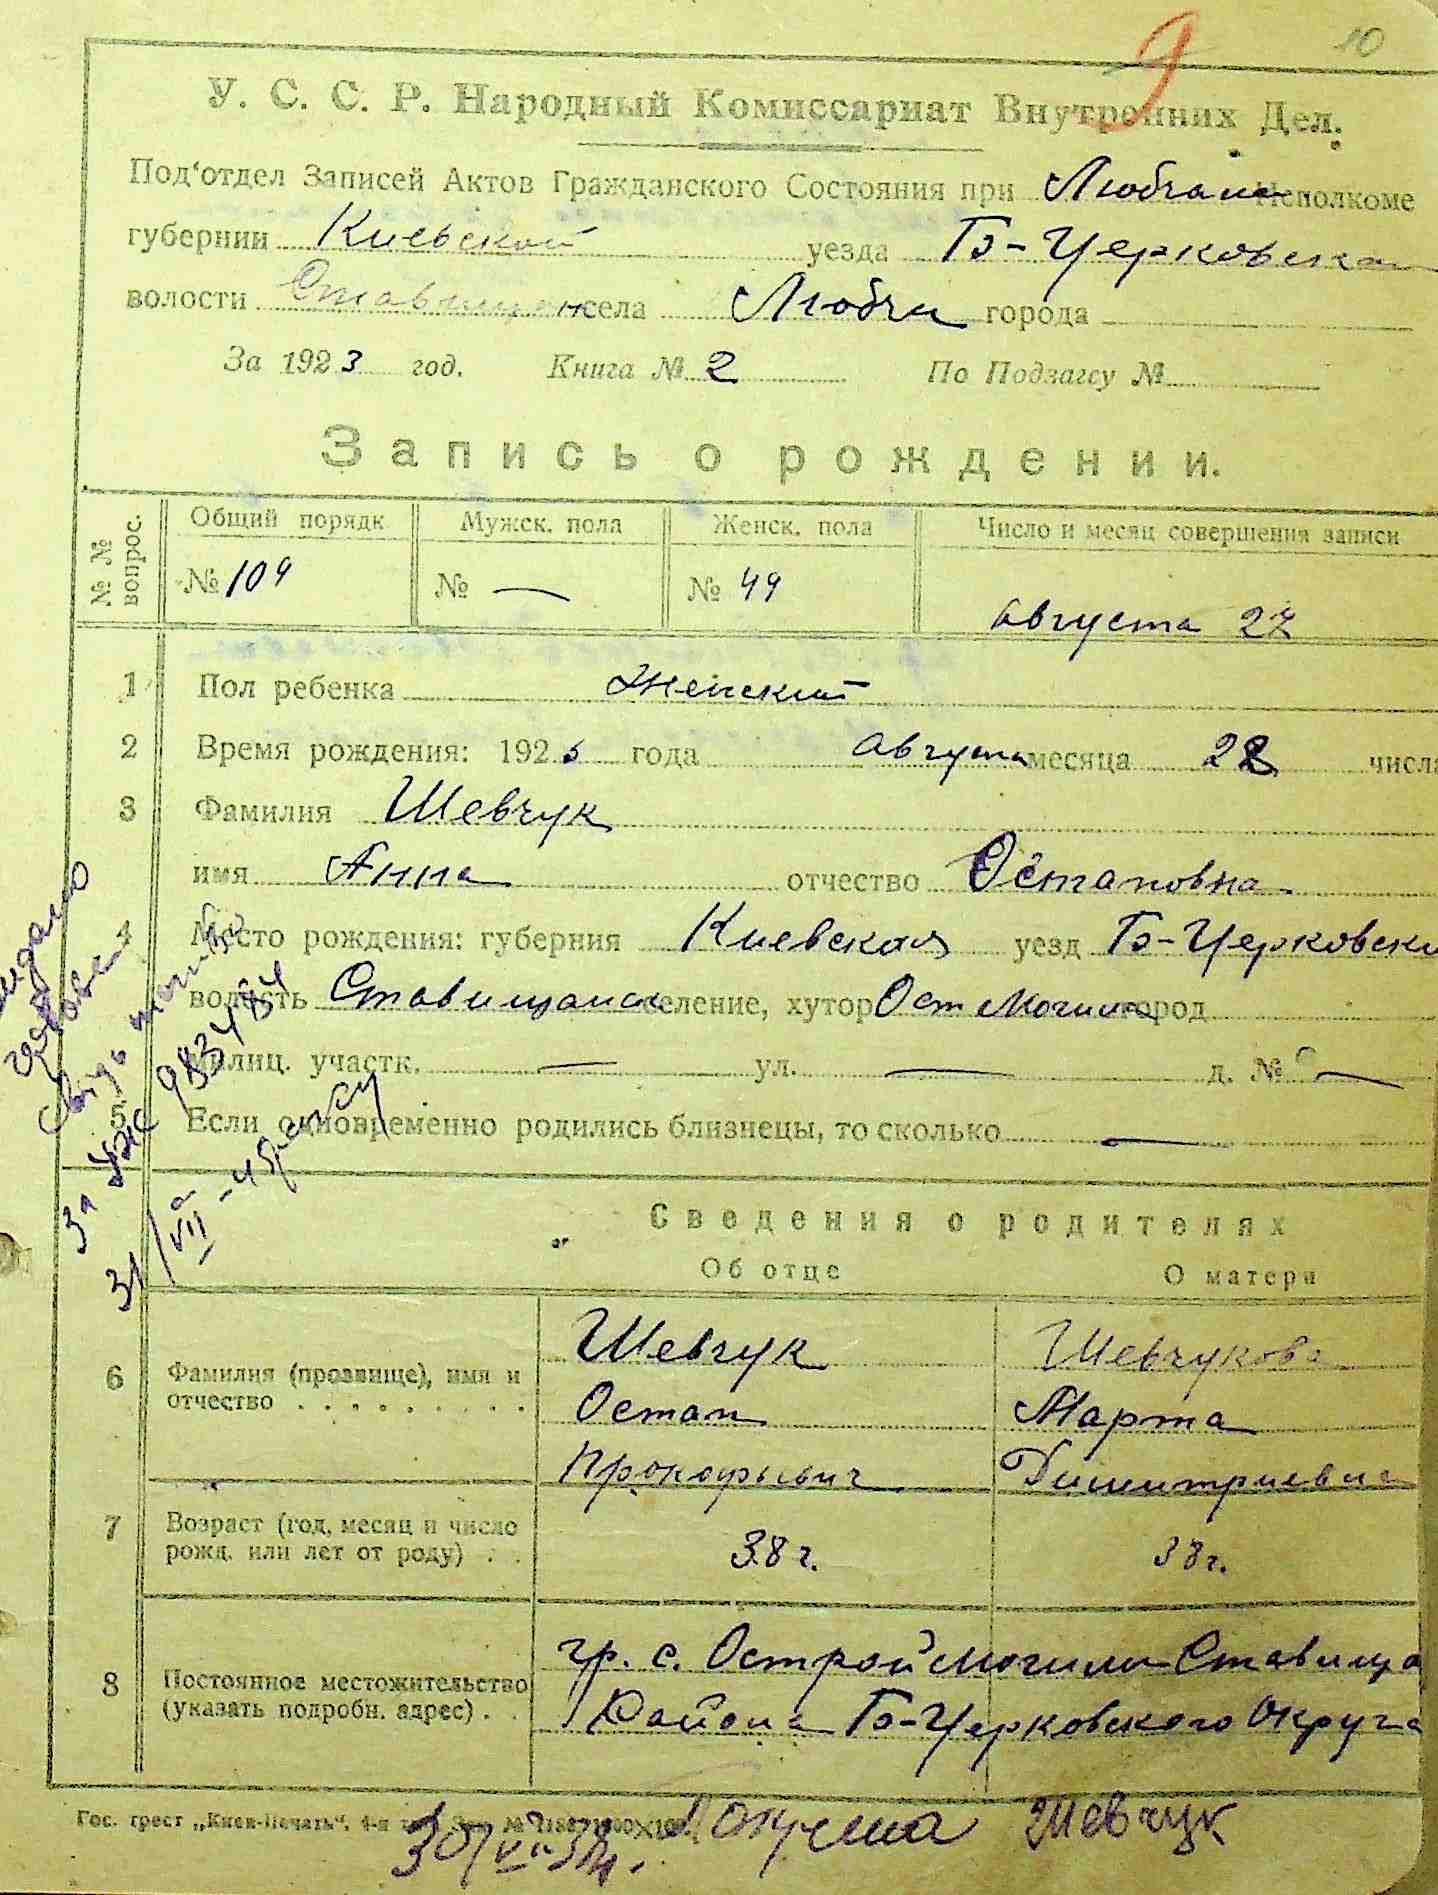 9 10
У. С. С. Р. Народный Комиссариат Внутренних Дел.
Под‘отдел Записей Актов Гражданского Состояния при Любчан Исполкоме
губернии Киевской уезда Б-Церковска
волости Ставищан села Любчи города
За 1923 год. Книга № 2 По Подзагсу №
Запись о рождении.
№ № вопрос. Общий порядк Мужск. пола Женск. пола Число и месяц совершения записи
№ 109 № — № 49 августа 27
1 Пол ребенка женский
2 Время рождения: 192 года августа месяца числа
3 Фамилия Шевчук
имя Анна отчество Остаповна
4 Место рождения: губерния Киевская уезд Б-Церковски
волость Ставищанск селение, хутор Ост Могила город
милиц. участк. — ул. — д. № —
5 Если одновременно родились близнецы, то сколько —
видано
свідо
за ЛЖ
31/VII
Сведения о родителях
Об отце О матери
6 Фамилия (прозвище), имя и Шевчук Шевчукова
отчество . . . . . . . . . Остап Марта
Прокофьевич Димитриевна
7 Возраст (год, месяц и число
рожд. или лет от роду) . . 38 г. 38 г.
8 Постоянное местожительство гр. с. Острой Могили Ставища
(указать подробн. адрес) . . Района Б-Церковского Округа
Гос. трест „Киев-Печать“, 4-я
Шевчук